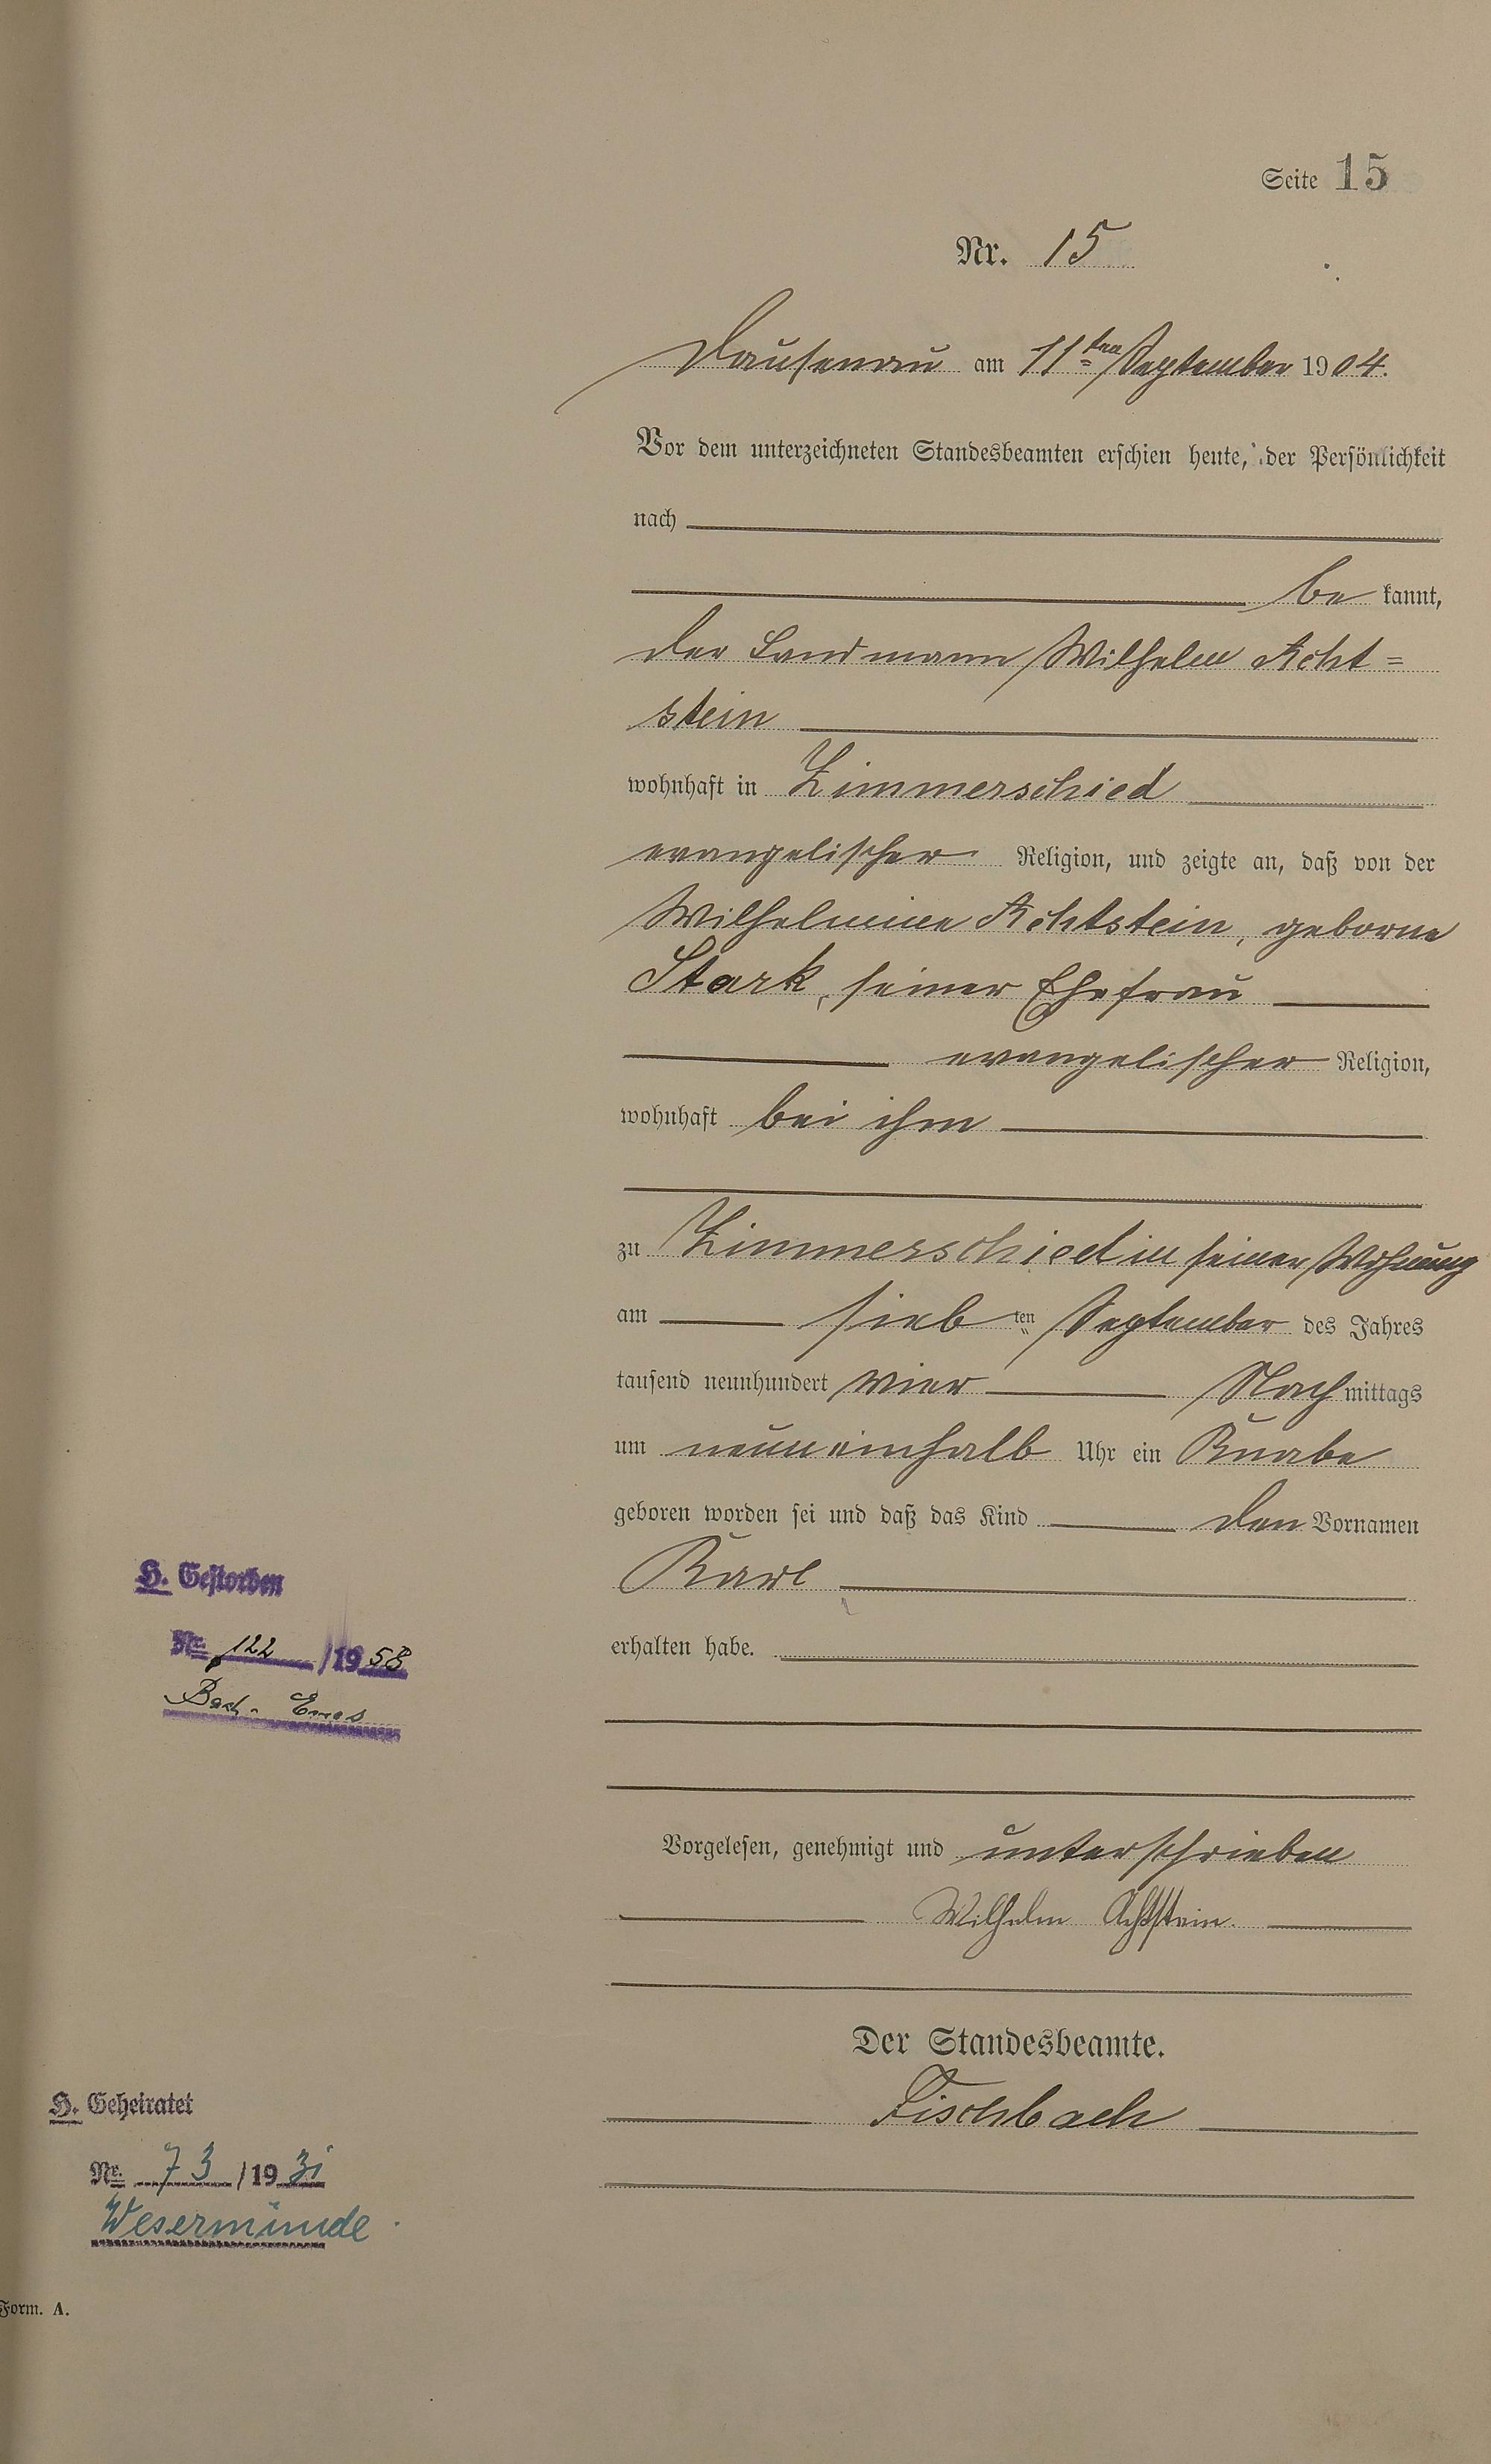 Seite 15
Nr. 15
Dausenau am 11ten September 1904.
Vor dem unterzeichneten Standesbeamten erschien heute, der Persönlichkeit
nach
be kannt,
der Landmann Wilhelm Acht=
stein
wohnhaft in Zimmerschied
evangelischer Religion, und zeigte an, daß von der
Wilhelmine Achtstein, geborne
Stark, seiner Ehefrau
evangelischer Religion,
wohnhaft bei ihm
zu Zimmerschied in seiner Wohnung
am sieb ten September des Jahres
tausend neunhundert vier Nachmittags
um neuneinhalb Uhr ein Knabe
geboren worden sei und daß das Kind den Vornamen
Karl
erhalten habe.
Vorgelesen, genehmigt und unterschrieben
Wilhelm Achtstein.
Der Standesbeamte.
Fischbach
H. Gestorben
Nr. 122 /1958
Bad-Ems
H. Geheiratet
Nr. 73 /1931
Wesermünde.
Form. A.